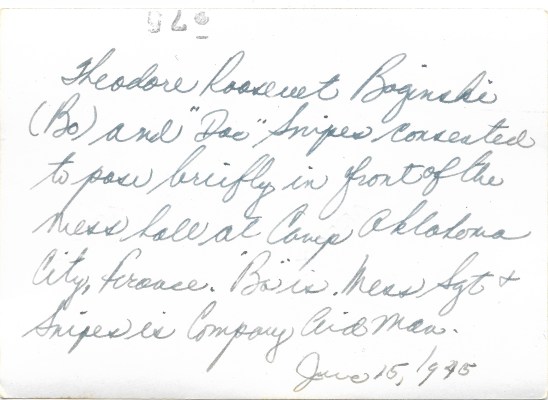 Theodore Roosevelt Boginski
(Bo) and "Doc" Snipes consested
to pose briefly in front of the
mess hall at Camp Oklahoma
City, France. "Bo" is Mess Sgt +
Snipes is Company Aid Man.
June 15, 1945